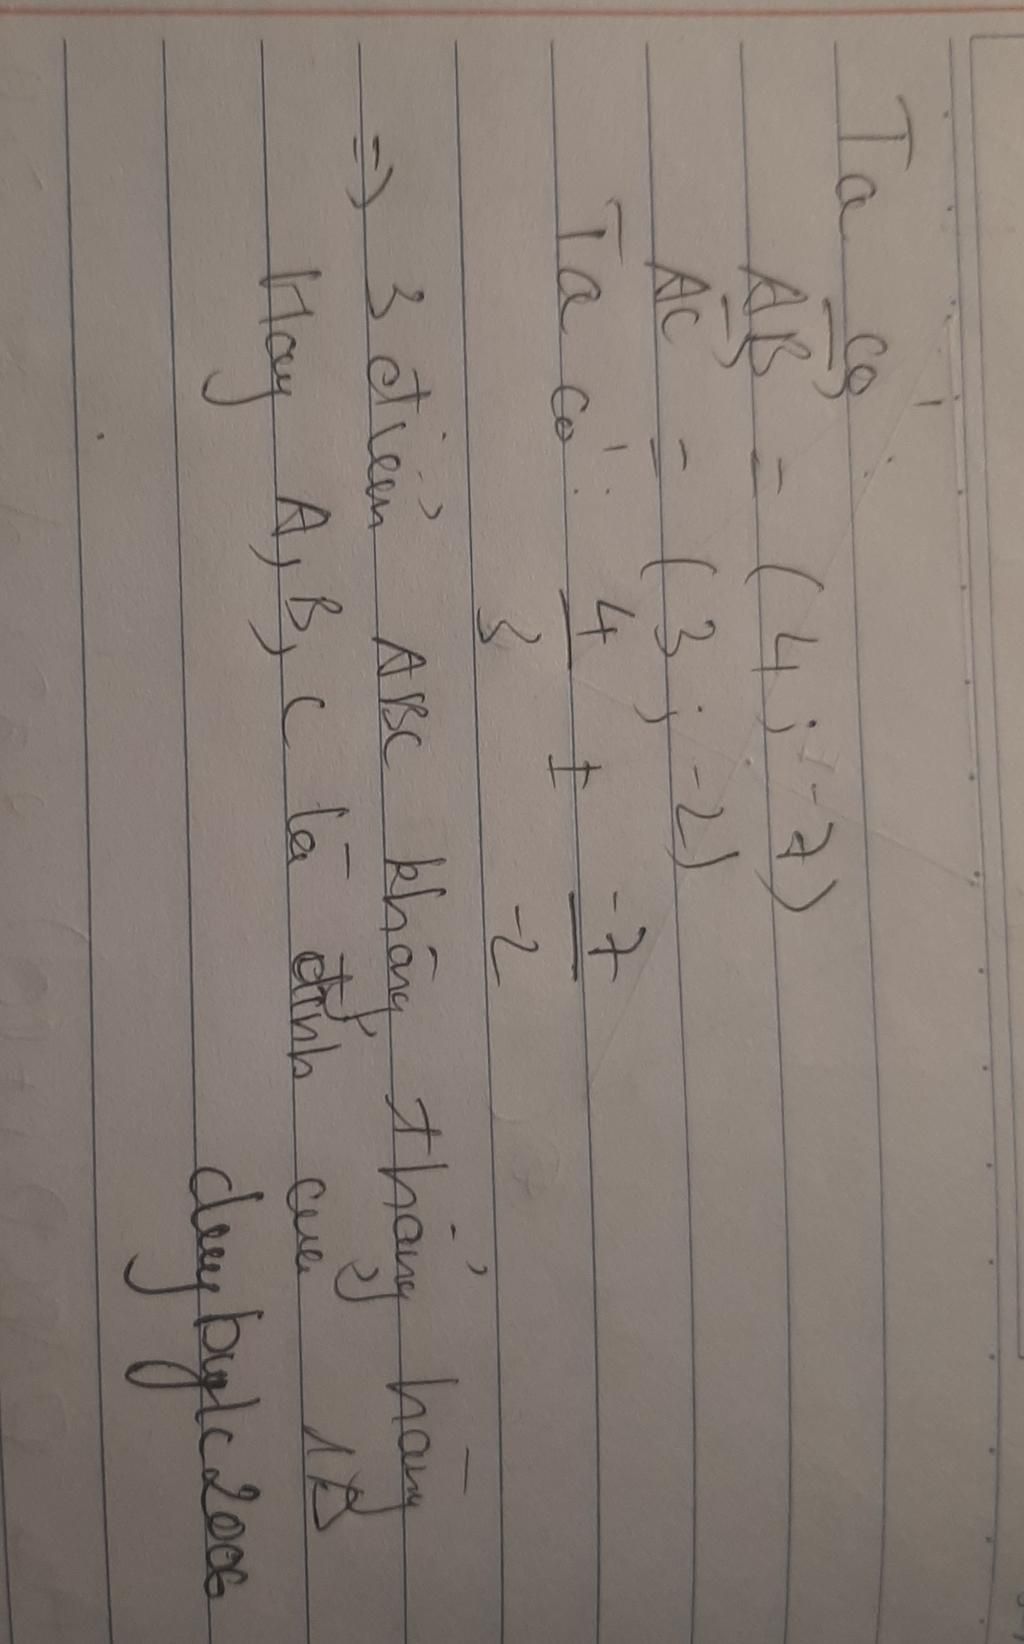 Ta có
AB = (4; -7)
AC = (3; -2)
Ta có: 4/3 ≠ -7/-2
=) 3 điểm ABC không thẳng hàng
Hay A, B, C là đỉnh của 1 Δ